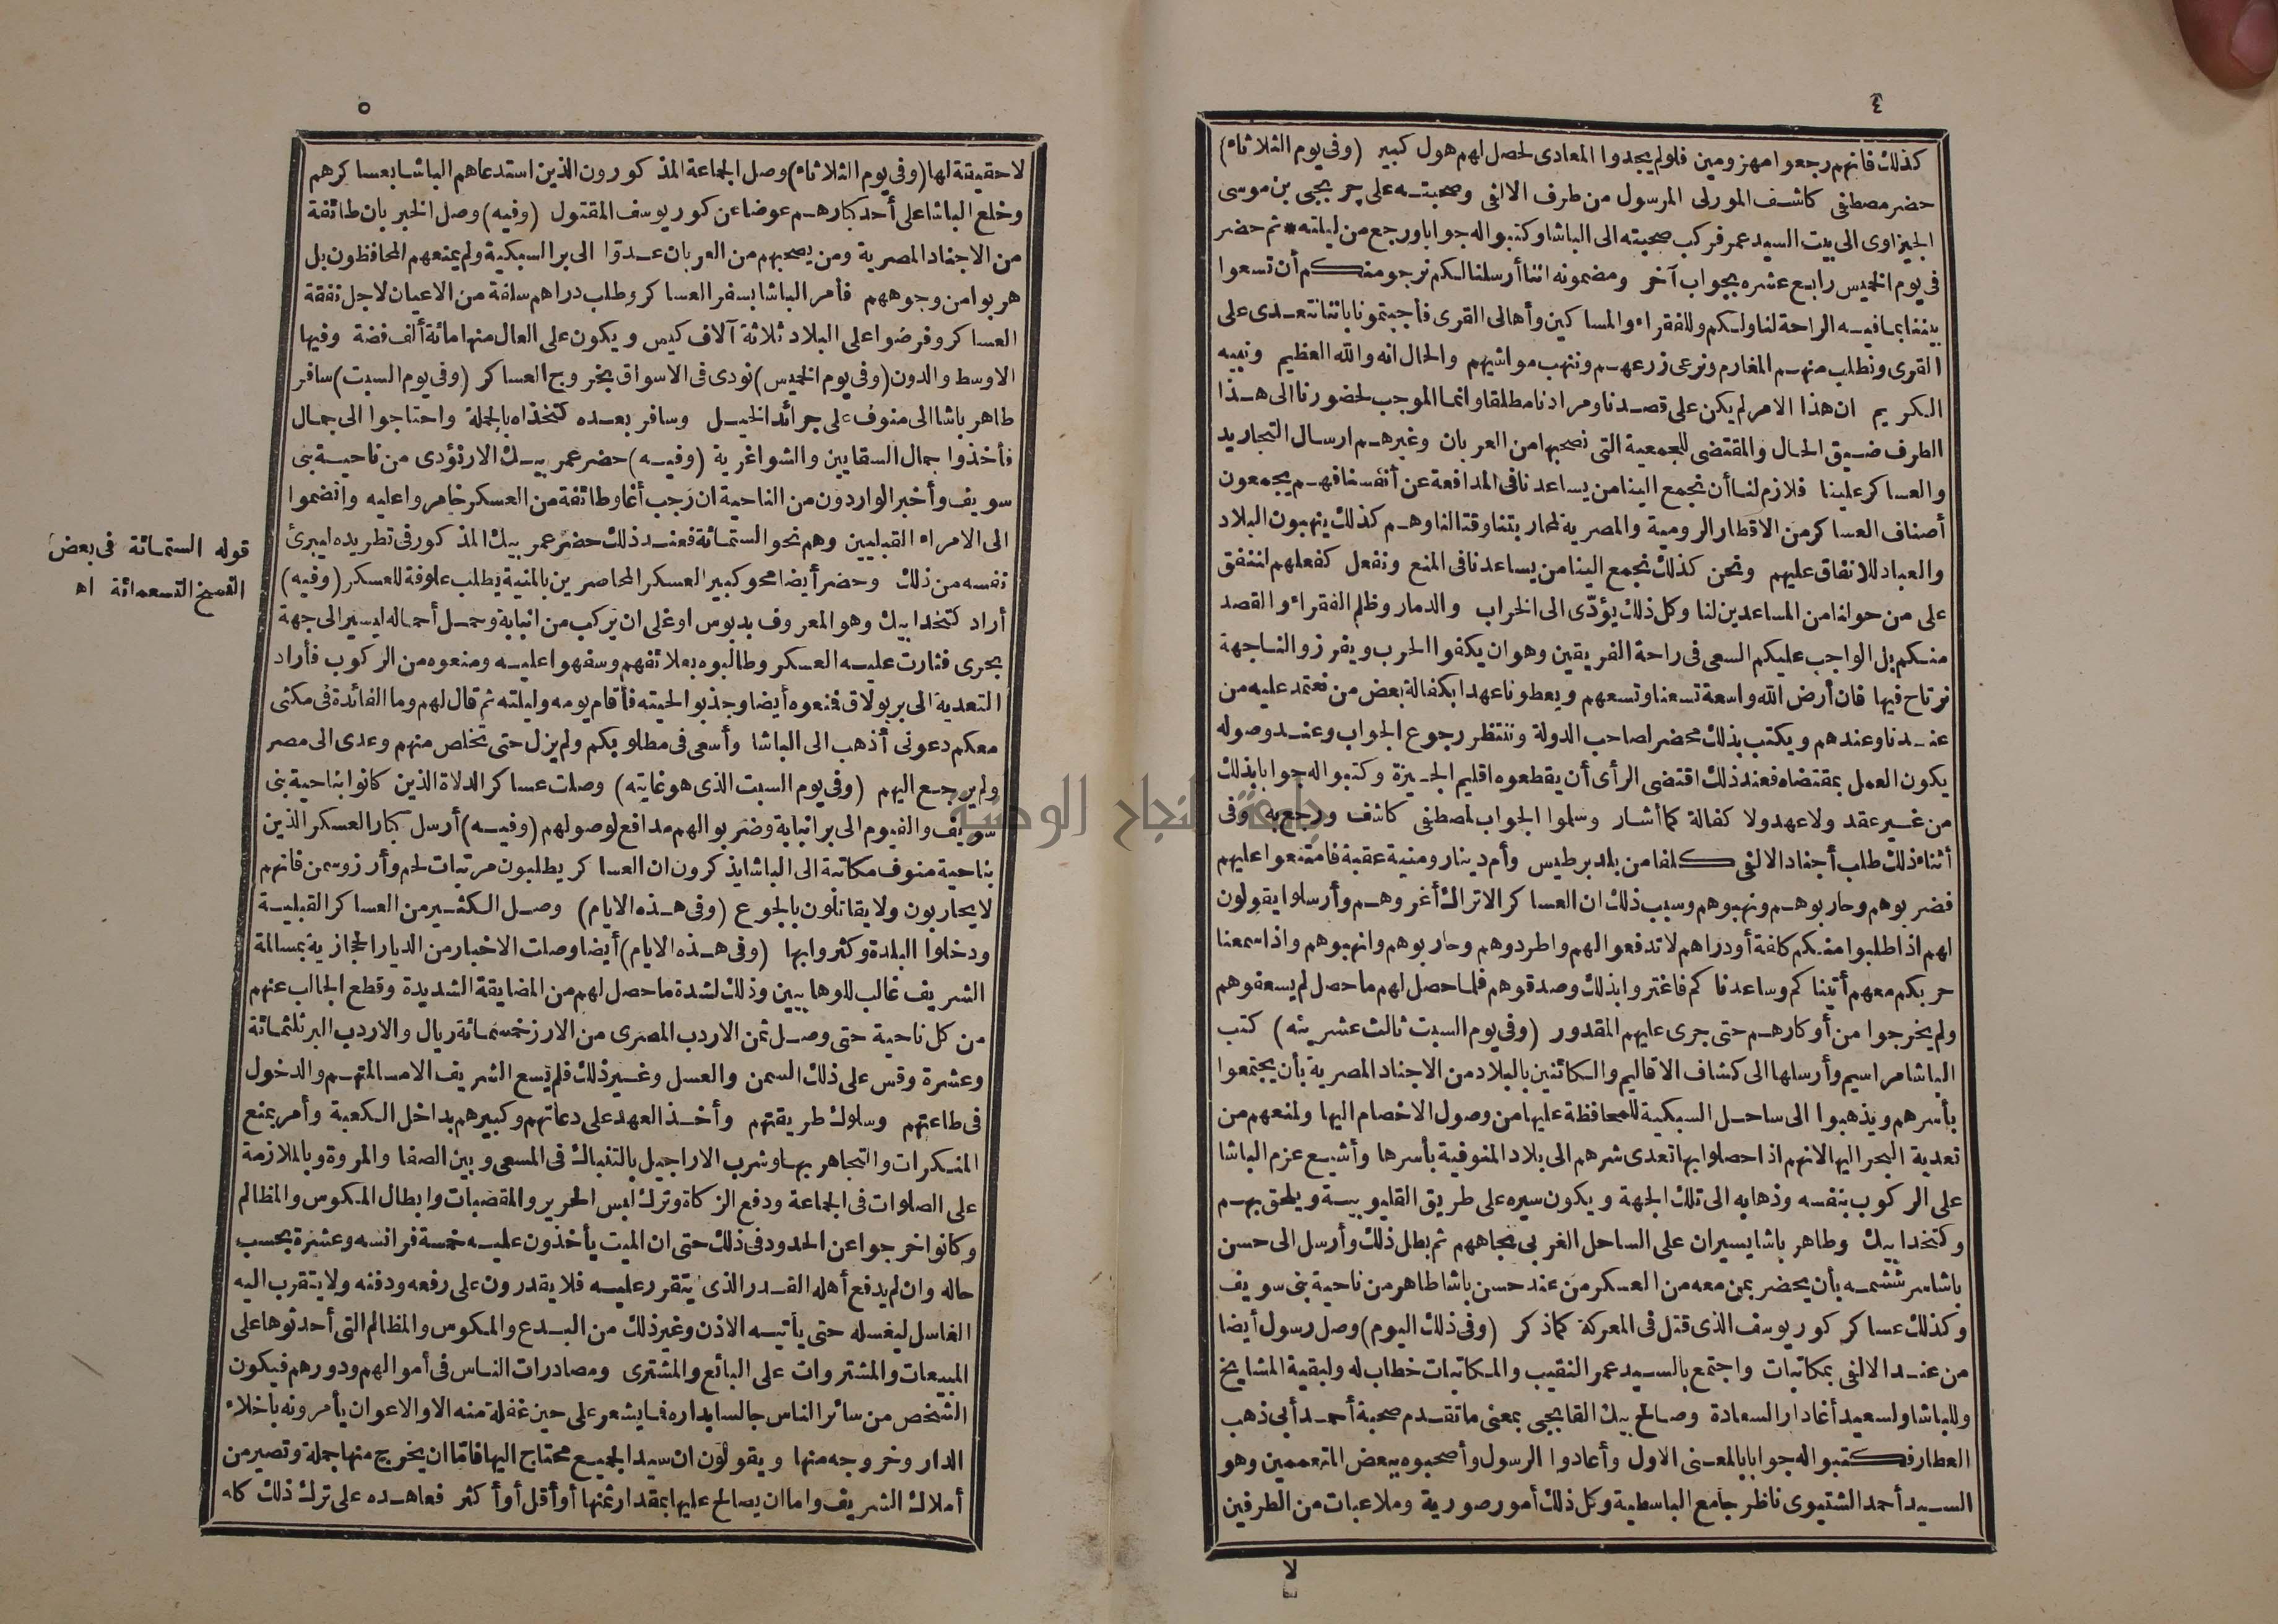 ٤
كذلك فانهم رجعوا مهزومين فلو لم يجدوا المعادى لحصل لهم هول كبير (وفى يوم الثلاثاء)
حضر مصطفى كاشف المورلى المرسول من طرف الالفى وصحبته على جربجى بن موسى
الجيزاوى الى بيت السيد عمر فركب صحبته الى الباشا وكتبوا له جوابا ورجع من ليلته * ثم حضر
فى يوم الخميس رابع عشره بجواب آخر ومضمونه اننا أرسلنا لكم نرجو منكم أن تسعوا
بيننا بما فيه الراحة لنا ولكم وللفقراء والمساكين وأهالى القرى فأجبتمونا باننا نتعدى على
القرى ونطلب منهم المغارم ونرعى زرعهم وننهب مواشيهم والحال انه والله العظيم ونبيه
الكريم ان هذا الامر لم يكن على قصدنا ومرادنا مطلقا وانما الموجب لحضورنا الى هذا
الطرف ضيق الحال والمقتضى للجمعية التى نصحبها من العربان وغيرهم ارسال التجاريد
والعساكر علينا فلازم لنا أن نجمع الينا من يساعدنا فى المدافعة عن أنفسنا فهم يجمعون
أصناف العساكر من الاقطار الرومية والمصرية لمحاربتنا وقتالنا وهم كذلك ينهبون البلاد
والعباد للانفاق عليهم ونحن كذلك نجمع الينا من يساعدنا فى المنع ونفعل كفعلهم لننفق
على من حولنا من المساعدين لنا وكل ذلك يؤدّى الى الخراب والدمار وظلم الفقراء والقصد
منكم بل الواجب عليكم السعى فى راحة الفريقين وهو ان يكفوا الحرب ويفرزوا لنا جهة
نرتاح فيها فان أرض الله واسعة تسعنا وتسعهم ويعطونا عهدا بكفالة بعض من نعتمد عليه من
عندنا وعندهم ويكتب بذلك محضرا لصاحب الدولة وننتظر رجوع الجواب وعند وصوله
يكون العمل بمقتضاه فعند ذلك اقتضى الرأى أن يقطعوه اقليم الجيزة وكتبوا له جوابا بذلك
من غير عقد ولا عهد ولا كفالة كما أشار وسلموا الجواب لمصطفى كاشف ورجع به وفى
أثناء ذلك طلب أجناد الالفى كلفا من بلد برطيس وأم دينار ومنية عقبة فامتنعوا عليهم
فضربوهم وحاربوهم ونهبوهم وسبب ذلك ان العساكر الاتراك أغروهم وأرسلوا يقولون
لهم اذا طلبوا منكم كلفة أو دراهم لا تدفعوا لهم واطردوهم وحاربوهم وانهبوهم واذا سمعنا
حربكم معهم أتيناكم وساعدناكم فاغتروا بذلك وصدقوهم فلما حصل لهم ما حصل لم يسعفوهم
ولم يخرجوا من أوكارهم حتى جرى عليهم المقدور (وفى يوم السبت ثالث عشرينه) كتب
الباشا مراسيم وأرسلها الى كشاف الاقاليم والكائنين بالبلاد من الاجناد المصرية بأن يجتمعوا
بأسرهم ويذهبوا الى ساحل السبكية للمحافظة عليها من وصول الاخصام اليها ولمنعهم من
تعدية البحر اليها لانهم اذا حصلوا بها تعدى شرهم الى بلاد المنوفية بأسرها وأشيع عزم الباشا
على الركوب بنفسه وذهابه الى تلك الجهة ويكون سيره على طريق القليوبية ويلحق بهم
وكتخدا بيك وطاهر باشا يسيران على الساحل الغربى تجاههم ثم بطل ذلك وأرسل الى حسن
باشا سرششمه بأن يحضر بمن معه من العسكر من عند حسن باشا طاهر من ناحية بنى سويف
وكذلك عساكر كور يوسف الذى قتل فى المعركة كما ذكر (وفى ذلك اليوم) وصل رسول أيضا
من عند الالفى بمكاتبات واجتمع بالسيد عمر النقيب والمكاتبات خطاب له ولبقية المشايخ
وللباشا ولسعيد أغا دار السعادة وصالح بيك القابجى بمعنى ما تقدم صحبة أحمد أبى ذهب
العطار فكتبوا له جوابا بالمعنى الاول وأعادوا الرسول وأصحبوه ببعض المتعممين وهو
السيد أحمد الشتيوى ناظر جامع الباسطية وكل ذلك أمور صورية وملاعبات من الطرفين
لا
٥
لا حقيقة لها (وفى يوم الثلاثاء) وصل الجماعة المذكورون الذين استدعاهم الباشا بعساكرهم
وخلع الباشا على أحد كبارهم عوضا عن كور يوسف المقتول (وفيه) وصل الخبر بان طائفة
من الاجناد المصرية ومن يصحبهم من العربان عدّوا الى بر السبكية ولم يمنعهم المحافظون بل
هربوا من وجوههم فأمر الباشا بسفر العساكر وطلب دراهم سلفة من الاعيان لاجل نفقة
العساكر وفرضوا على البلاد ثلاثة آلاف كيس ويكون على العال منها مائة ألف فضة وفيها
الاوسط والدون (وفى يوم الخميس) نودى فى الاسواق بخروج العساكر (وفى يوم السبت) سافر
طاهر باشا الى منوف على جرائد الخيل وسافر بعده كتخذاه بالجملة واحتاجوا الى جمال
فأخذوا جمال السقايين والشواغرية (وفيه) حضر عمر بيك الارنؤدى من ناحية بنى
سويف وأخبر الواردون من الناحية ان رجب أغا وطائفة من العسكر خامروا عليه وانضموا
الى الامراء القبليين وهم نحو الستمائة فعند ذلك حضر عمر بيك المذكور فى تطريده ليبرئ
نفسه من ذلك وحضر أيضا محو كبير العسكر المحاصرين بالمنية يطلب علوفة للعسكر (وفيه)
أراد كتخدا بيك وهو المعروف بدبوس اوغلى ان يركب من انبابة وحمل أحماله ليسير الى جهة
بحرى فثارت عليه العسكر وطالبوه بعلائفهم وسفهوا عليه ومنعوه من الركوب فأراد
التعدية الى بر بولاق فمنعوه أيضا وجذبوا لحيته فأقام يومه وليلته ثم قال لهم وما الفائدة فى مكثى
معكم دعونى أذهب الى الباشا وأسعى فى مطلوبكم ولم يزل حتى تخلص منهم وعدى الى مصر
ولم يرجع اليهم (وفى يوم السبت الذى هو غايته) وصلت عساكر الدلاة الذين كانوا بناحية بنى
سويف والفيوم الى بر انبابة وضربوا لهم مدافع لوصولهم (وفيه) أرسل كبار العسكر الذين
بناحية منوف مكاتبة الى الباشا يذكرون ان العساكر يطلبون مرتبات لحم وأرز وسمن فانهم
لا يحاربون ولا يقاتلون بالجوع (وفى هذه الايام) وصل الكثير من العساكر القبلية
ودخلوا البلدة وكثروا بها (وفى هذه الايام) أيضا وصلت الاخبار من الديار الحجازية بمسالمة
الشريف غالب للوهابيين وذلك لشدة ما حصل لهم من المضايقة الشديدة وقطع الجالب عنهم
من كل ناحية حتى وصل ثمن الاردب المصرى من الارز خمسمائة ريال والاردب البر ثلثمائة
وعشرة وقس على ذلك السمن والعسل وغير ذلك فلم يسع الشريف الا مسالمتهم والدخول
فى طاعتهم وسلوك طريقتهم وأخذ العهد على دعاتهم وكبيرهم بداخل الكعبة وأمر بمنع
المنكرات والتجاهر بها وشرب الاراجيل بالتنباك فى المسعى وبين الصفا والمروة وبالملازمة
على الصلوات فى الجماعة ودفع الزكاة وترك لبس الحرير والمقصبات وابطال المكوس والمظالم
وكانوا خرجوا عن الحدود فى ذلك حتى ان الميت يأخذون عليه خمسة فرانسه وعشرة بحسب
حاله وان لم يدفع أهله القدر الذى يتقرر عليه فلا يقدرون على رفعه ودفنه ولا يتقرب اليه
الغاسل ليغسله حتى يأتيه الاذن وغير ذلك من البدع والمكوس والمظالم التى أحدثوها على
المبيعات والمشتروات على البائع والمشترى ومصادرات الناس فى أموالهم ودورهم فيكون
الشخص من سائر الناس جالسا بداره فما يشعر على حين غفلة منه الا والاعوان يأمرونه باخلاء
الدار وخروجه منها ويقولون ان سيد الجميع محتاج اليها فاما ان يخرج منها جملة وتصير من
أملاك الشريف واما ان يصالح عليها بمقدار ثمنها أو أقل أو أكثر فعاهده على ترك ذلك كله
قوله الستمائة فى بعض
النسخ التسعمائة اه
جامعة النجاح الوطنية